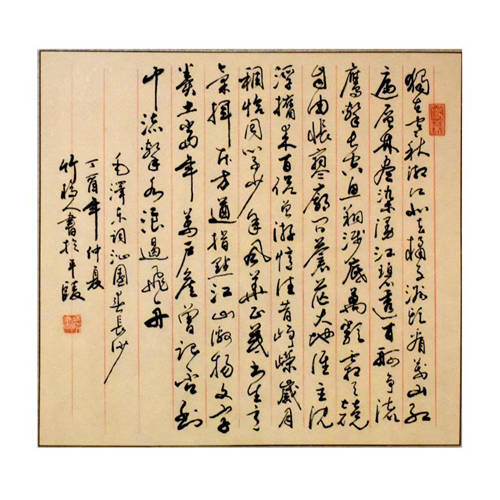 獨立寒秋湘江北去橘子洲頭看萬山紅
遍層林盡染漫江碧透百舸爭流
鷹擊長空魚翔淺底萬類霜天競
自由悵寥廓問蒼茫大地誰主沉
浮攜來百侶曾游憶往昔崢嶸歲月
稠恰同學少年風華正茂書生意
氣揮斥方遒指點江山激揚文字
糞土當年萬戶侯曾記否到
中流擊水浪遏飛舟
毛澤東詞沁園春長沙
丁酉年仲夏
竹人書於平陵